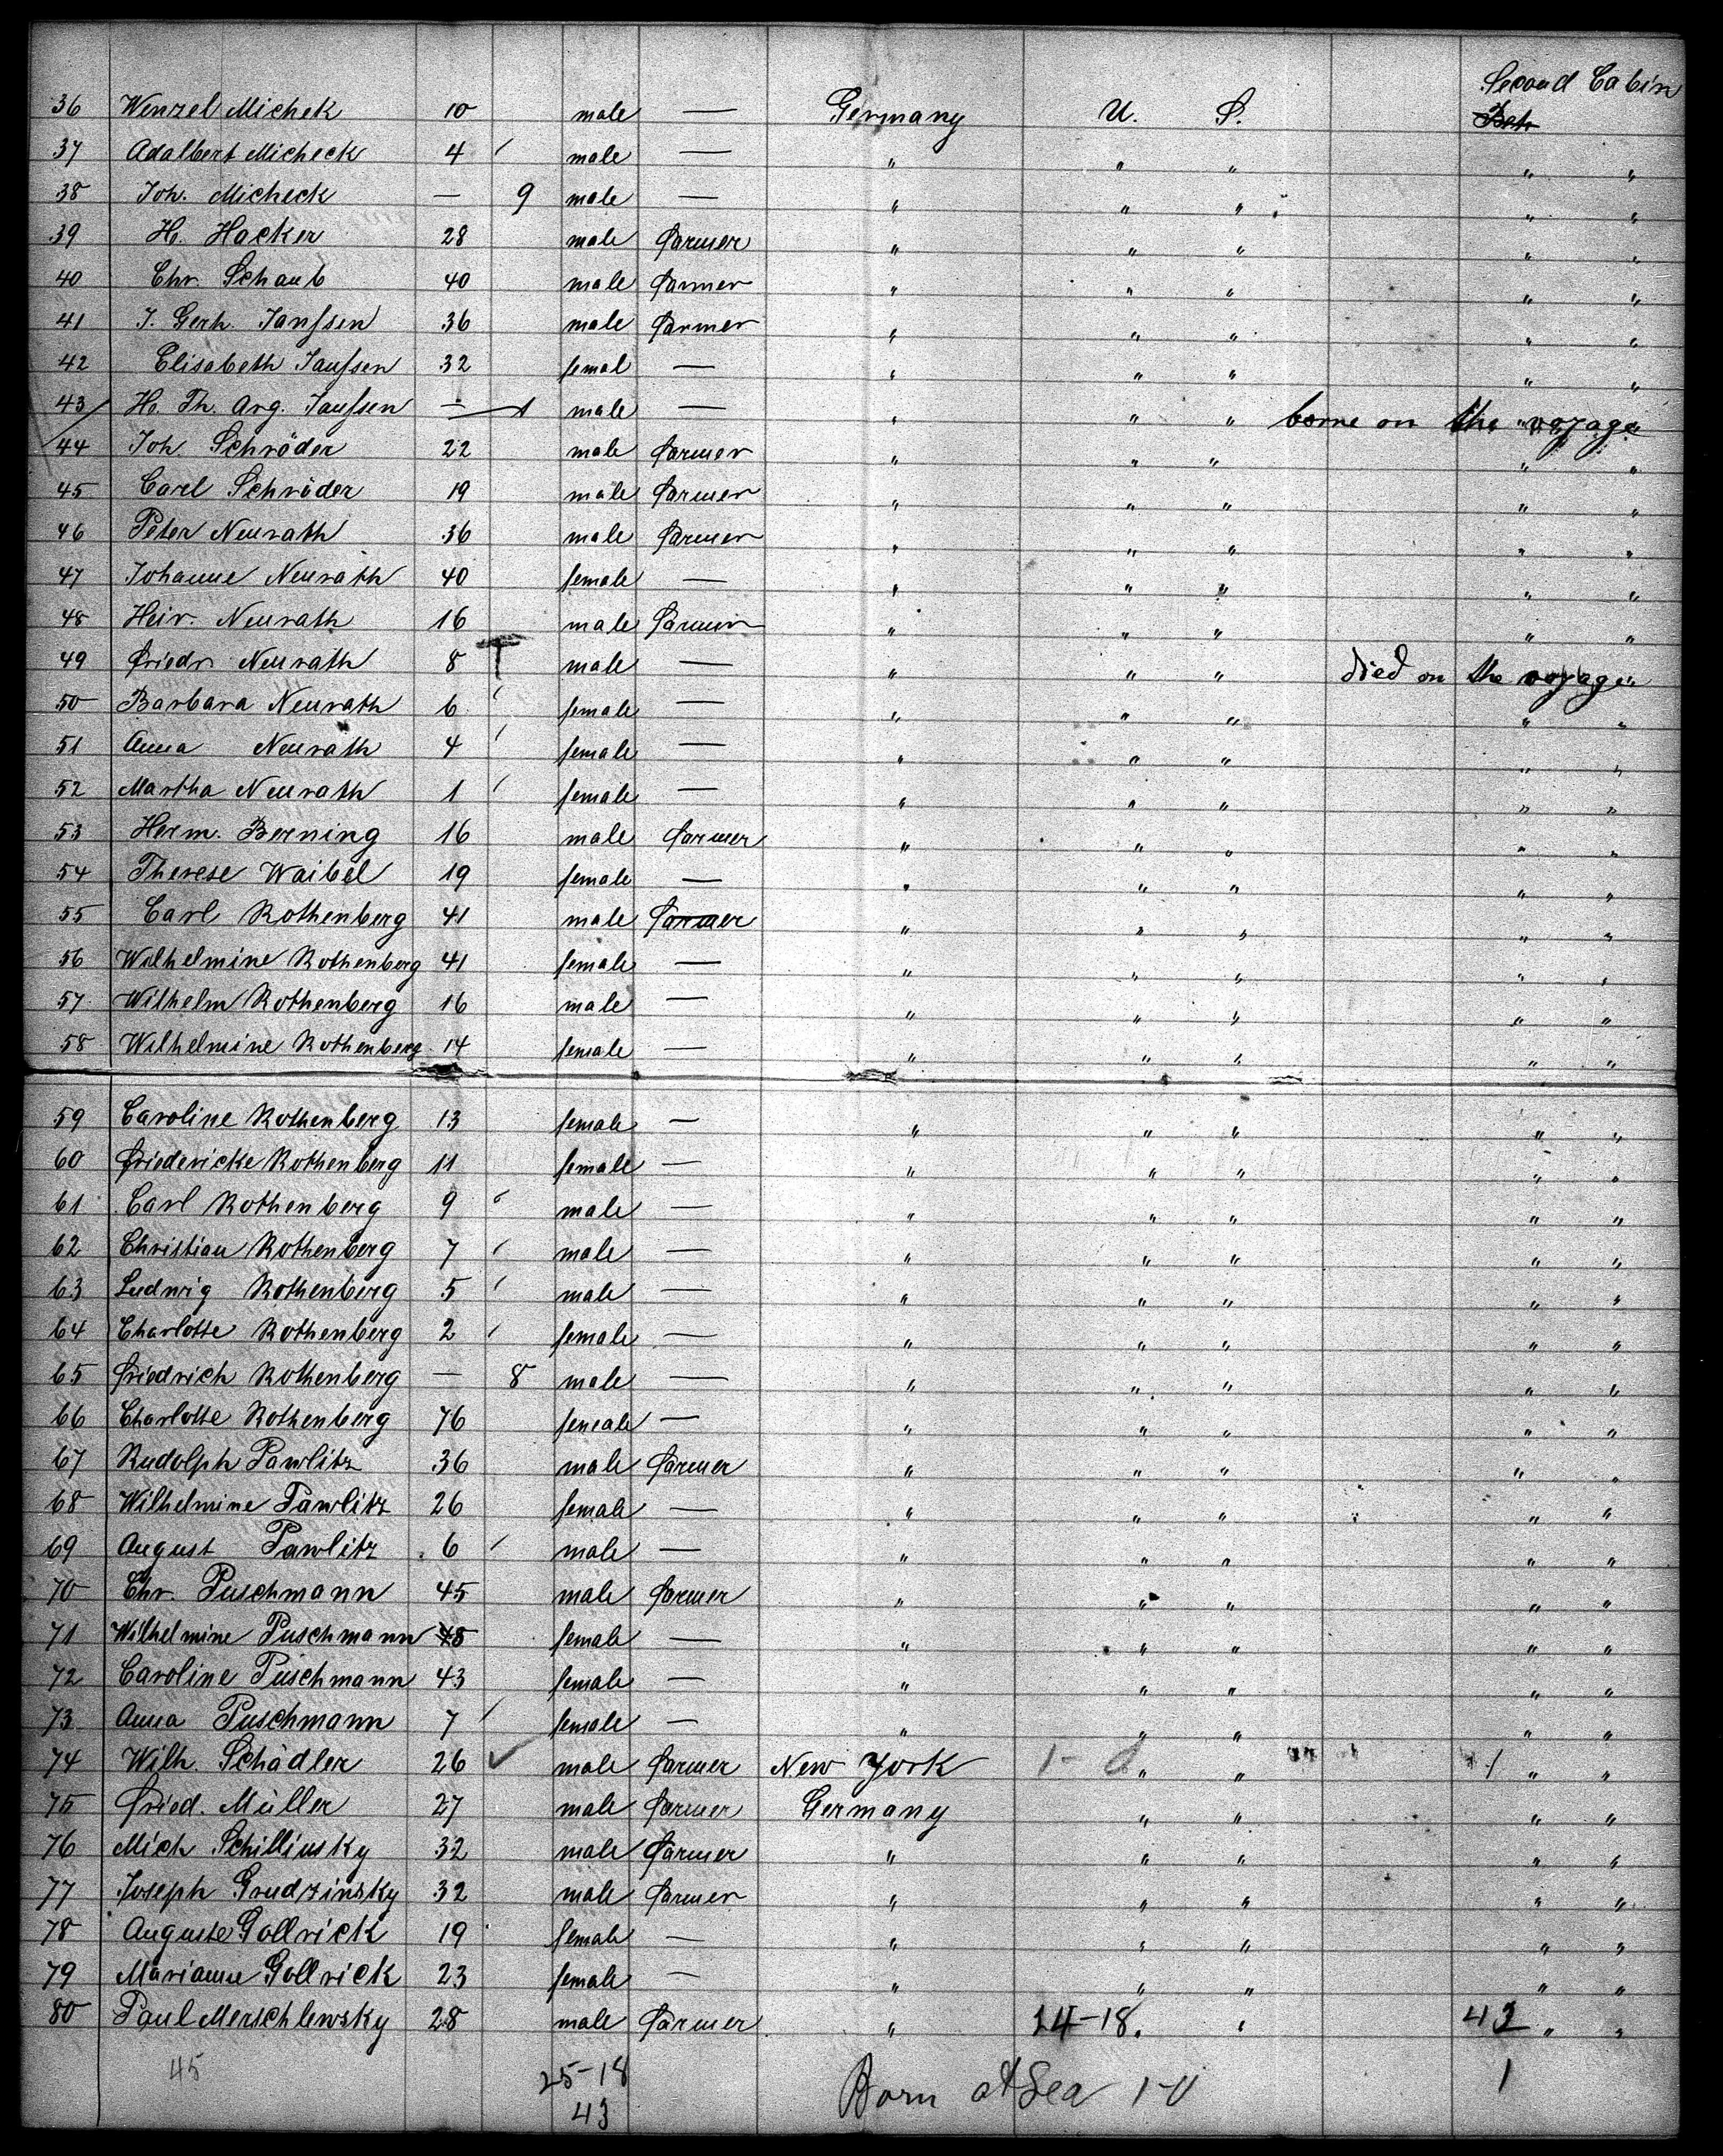 Second Cabin
36 Wenzel Michek 10 male — Germany U. S. Beh
37 Adalbert Micheck 4 ' male — " " " " "
38 Joh. Micheck — 9 male — " " " " "
39 H. Hacker 28 male farmer " " " " "
40 Chr. Schaub 40 male farmer " " " " "
41 J. Gerh. Janssen 36 male farmer " " " " "
42 Elisabeth Janssen 32 femal — " " " " "
43 H. Th. Arg. Janssen — 1 male — " " " borne on the voyage
44 Joh. Schröder 22 male farmer " " " " "
45 Carl Schröder 19 male farmer " " " " "
46 Peter Neurath 36 male farmer " " " " "
47 Johanne Neurath 40 female — " " " " "
48 Heir. Neurath 16 male farmer " " " " "
49 Friedr. Neurath 8 T male — " " " died on the voyage
50 Barbara Neurath 6 ' female — " " " " "
51 Anna Neurath 4 ' female — " " " " "
52 Martha Neurath 1 ' female — " " " " "
53 Herm. Berning 16 male farmer " " " " "
54 Therese Waibel 19 female — " " " " "
55 Carl Rothenberg 41 male farmer " " " " "
56 Wilhelmine Rothenberg 41 female — " " " " "
57 Wilhelm Rothenberg 16 male — " " " " "
58 Wilhelmine Rothenberg 14 female — " " " " "
59 Caroline Rothenberg 13 female — " " " " "
60 Friedericke Rothenberg 11 female — " " " " "
61 Carl Rothenberg 9 ' male — " " " " "
62 Christian Rothenberg 7 ' male — " " " " "
63 Ludwig Rothenberg 5 ' male — " " " " "
64 Charlotte Rothenberg 2 ' female — " " " " "
65 Friedrich Rothenberg — 8 male — " " " " "
66 Charlotte Rothenberg 76 female — " " " " "
67 Rudolph Pawlitz 36 male farmer " " " " "
68 Wilhelmine Pawlitz 26 female — " " " " "
69 August Pawlitz 6 ' male — " " " " "
70 Chr. Puschmann 45 male farmer " " " " "
71 Wilhelmine Puschmann 48 female — " " " " "
72 Caroline Puschmann 43 female — " " " " "
73 Anna Puschmann 7 ' female — " " " " "
74 Wilh. Schädler 26 ✓ male farmer New York 1-0 " " 1 " "
75 Fried. Müller 27 male farmer Germany " " " "
76 Mich Schillinsky 32 male farmer " " " " "
77 Joseph Grudzinsky 32 male farmer " " " " "
78 Auguste Gollrick 19 female — " " " " "
79 Marianne Gollrick 23 female — " " " " "
80 Paul Merschlewsky 28 male farmer " 24-18 " " 42 " "
45 25-18 Born at Sea 1-0 1
43